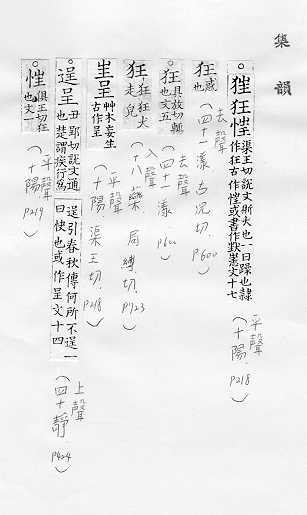 集韻
狂狂惶 渠王切說文狾犬也一曰躁也隸
作狂古作惶或書作㹵文十七
平聲
(十陽 P218)
狂 惑也
去聲
(四十一漾 古況切 P600)
狂 具放切輙
也文五
去聲
(四十一漾 P600)
狂 狂狂犬
走皃
入聲
(十八藥 局縛切 P723)
㞷呈 艸木妄生
古作呈
平聲
(十陽 渠王切 P218)
逞呈 丑郢切說文通
也楚謂疾行為
逞引春秋傳何所不逞一
曰快也或作呈文十四
上聲
(四十靜 P424)
惶 俱王切狂
也文一
平聲
(十陽 P219)